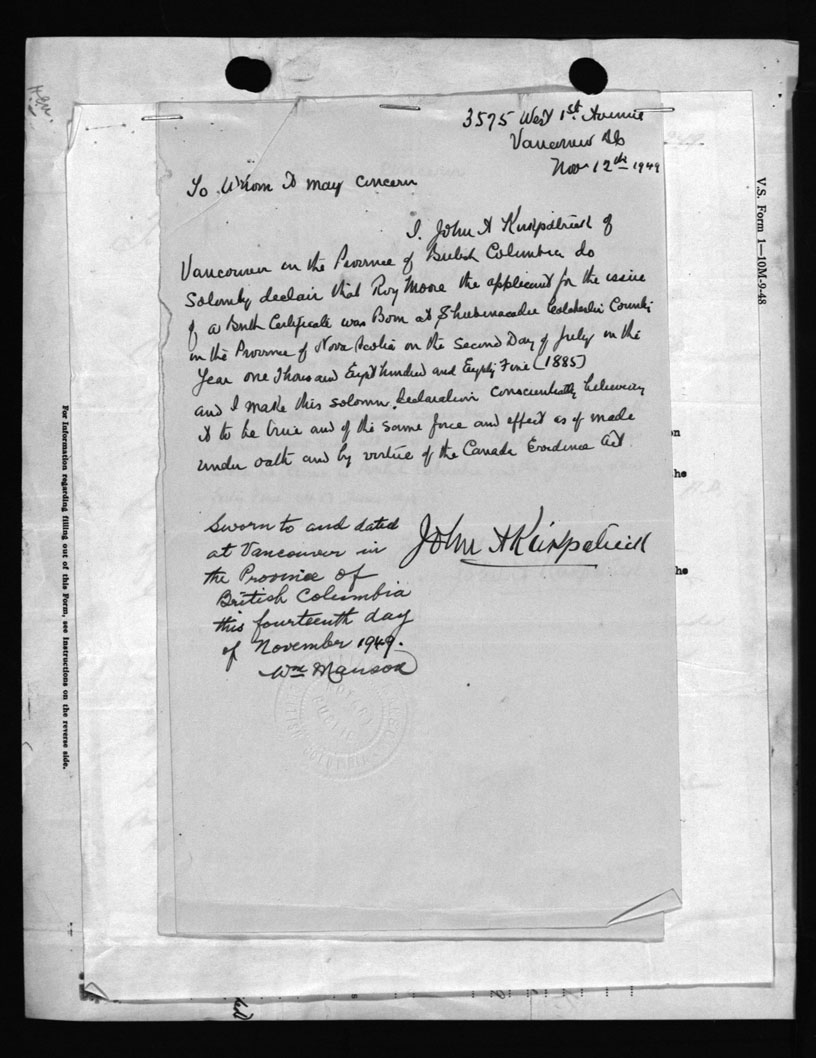 3575 West 1st Avenue
Vancouver BC
Nov 12th 1949
To Whom It may Concern
I. John A Kirkpatrick of
Vancouver in the Province of British Columbia do
Solomly declair that Roy Moore the applicant for the issue
of a Birth Certificate was Born at Shubenacadie Colchester County
in the Province of Nova Scotia on the Second Day of July in the
Year one Thousand Eight hundred and Eighty Five (1885)
and I make this solomn Declaration conscientiously believing
it to be true and of the same force and effect as if made
under oath and by virtue of the Canada Evidence Act
Sworn to and dated
at Vancouver in
the Province of
British Columbia
this fourteenth day
of November 1949.
Wm Manson
John A Kirkpatrick
NOTARY
PUBLIC
V.S. Form 1—10M-9-48
For Information regarding filling out of this Form, see Instructions on the reverse side.
he
he